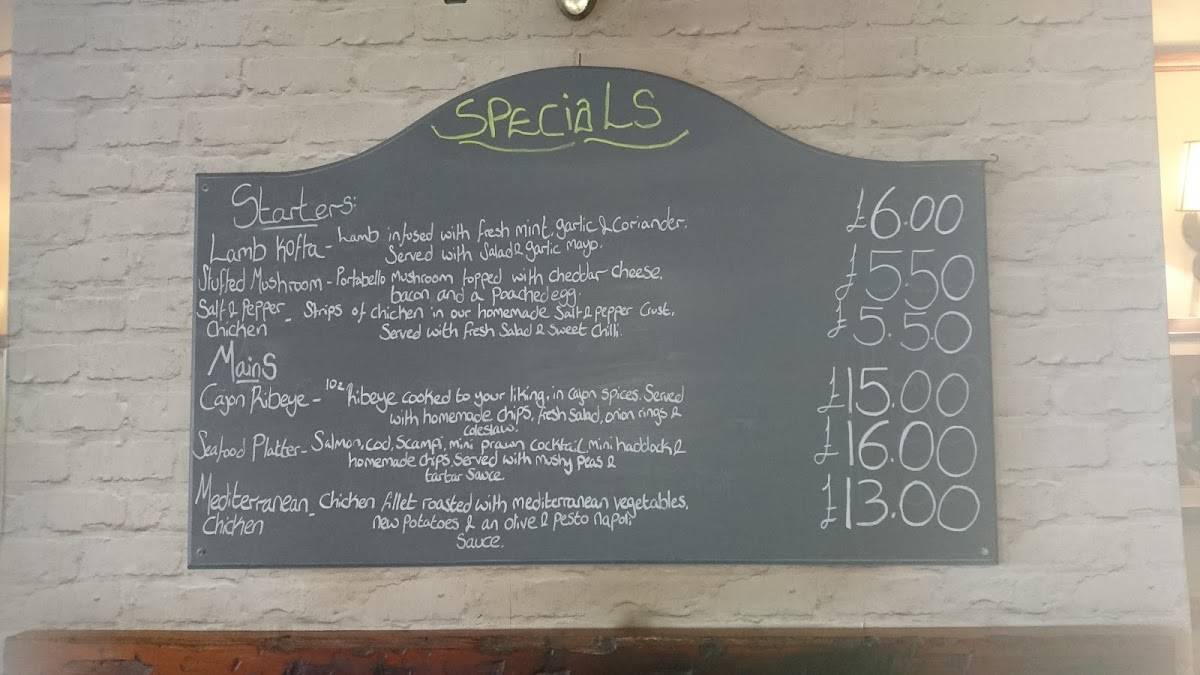 SPECiaLS
Starters:
£6.00
Lamb Kofta - Lamb infused with fresh mint, garlic & Coriander.
Served with Salad & garlic mayo.
Stuffed Mushroom - Portabello Mushroom topped with cheddar cheese, £5.50
bacon and a poached egg.
Salt & Pepper - Strips of chicken in our homemade Salt & pepper Crust. £5.50
Chicken Served with fresh Salad & Sweet Chilli.
Mains
Cajon Ribeye - 10z Ribeye cooked to your liking, in cajon spices. Served £15.00
with homemade chips, fresh salad, onion rings &
coleslaw.
Seafood Platter - Salmon, cod, Scampi, mini prawn cocktail, mini haddock & £16.00
homemade chips. Served with mushy peas &
tartar Sauce.
Mediterranean - Chicken fillet roasted with mediterranean vegetables, £13.00
Chicken new potatoes & an olive & pesto napoli
Sauce.